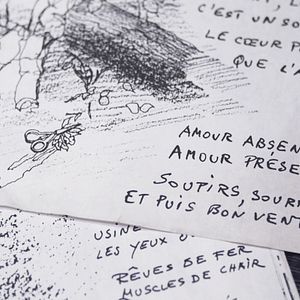 C'EST UN SO
LE CŒUR P
QUE L'A
AMOUR ABSEN
AMOUR PRÉSE
SOUPIRS, SOUR
ET PUIS BON VENT
USINE
LES YEUX O
RÊVES DE FER
MUSCLES DE CHAIR